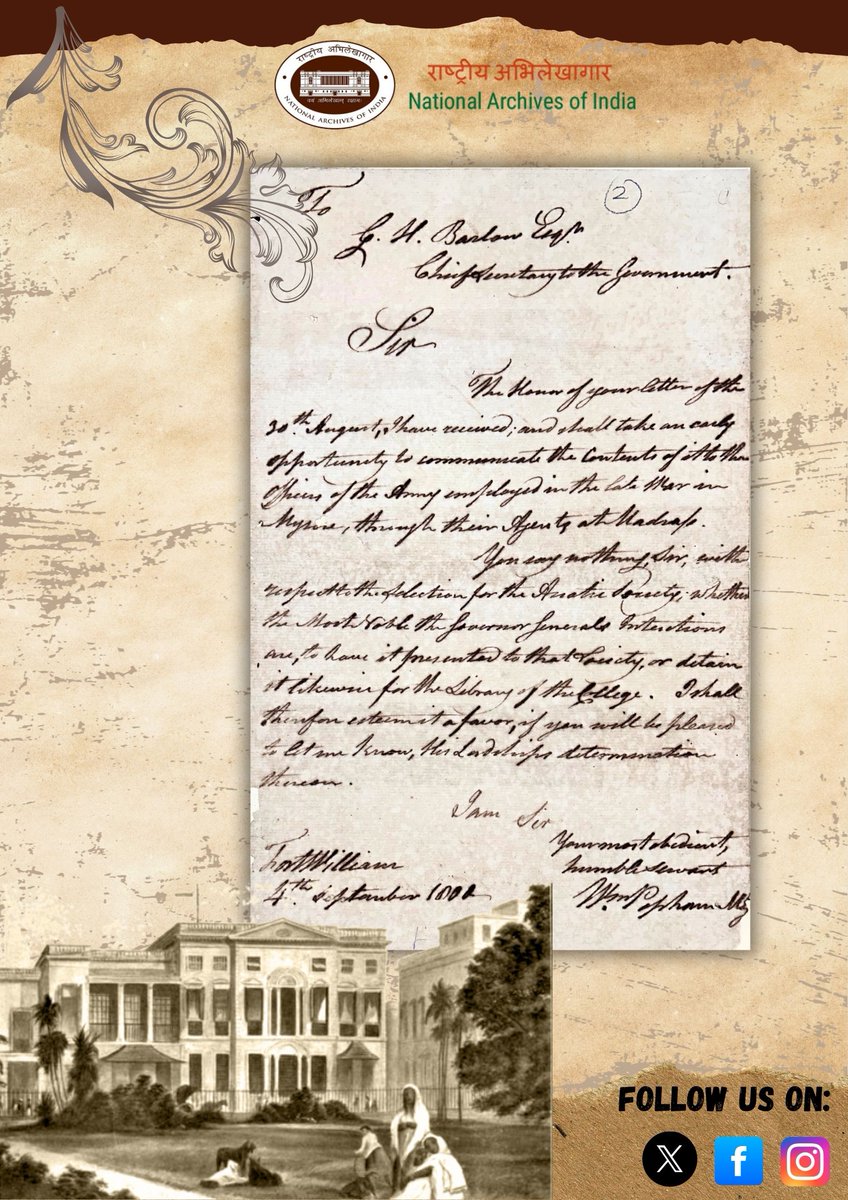 राष्ट्रीय अभिलेखागार
NATIONAL ARCHIVES OF INDIA
राष्ट्रीय अभिलेखागार
National Archives of India
2
To
G. H. Barlow Esqr
Chief Secretary to the Government.
Sir
The Honor of your letter of the
30th August, I have received; and shall take an early
opportunity to communicate the Contents of it to the
Officers of the Army employed in the late War in
Mysore, through their Agents at Madrass.
You say nothing, Sir, with
respect to the Selection for the Asiatic Society; whether
the Most Noble the Governor Generals Intentions
are, to have it presented to that Society, or detain
it likewise for the Library of the College. I shall
therefore esteem it a favor, if you will be pleased
to let me know, His Lordships determination
thereon.
I am Sir
Your most obedient,
humble servant
Fort William
4th September
Wm Popham
FOLLOW US ON:
X
f